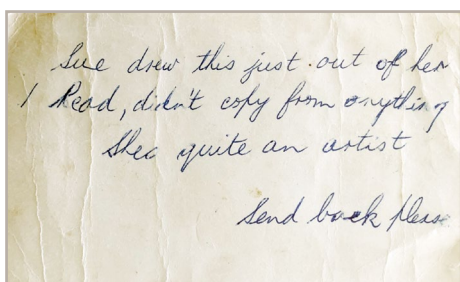 Sue drew this just out of her
Head, didn't copy from anything
Shes quite an artist
Send back please